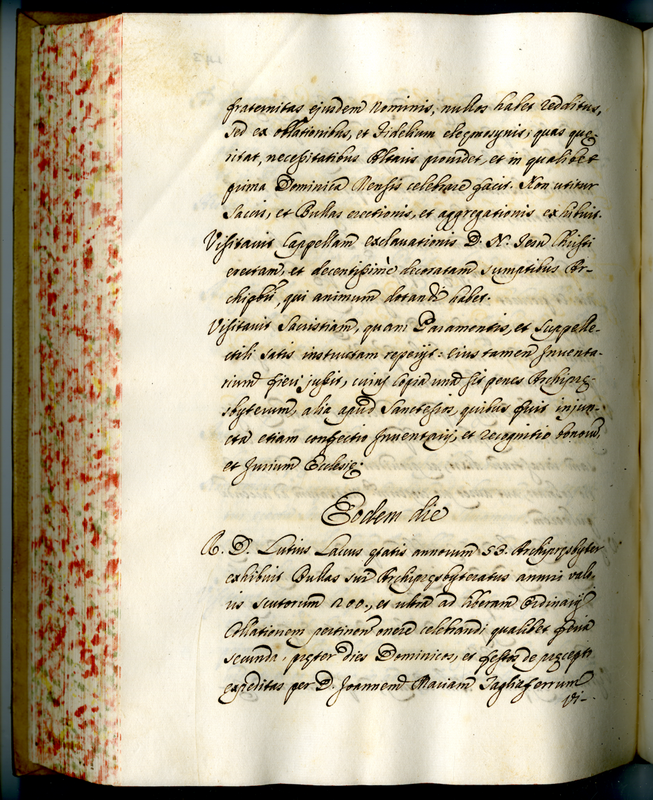 fraternitas ejusdem nominis, nullos habet redditus,
sed ex oblationibus, et Fidelium elęemosynis, quas quę-
ritat, necessitatibus Altaris providet, et in qualibet
prima Dominica Mensis celebrare facit. Non utitur
Saccis, et Bullas erectionis, et aggregationis exhibuit.
Visitavit Cappellam exclavationis D. N. Jesu Christi
erectam, et decentissimè decoratam sumptibus Ar-
chipbri, qui animum dotandi habet.
Visitavit Sacristiam, quam Paramentis, et Suppelle-
ctili satis instructam reperijt: eius tamen Inventa-
rium fieri jussit, cuius copia una sit penes Archiprę-
sbyterum, alia apud Sanctesios, quibus fuit injun-
cta etiam confectio Inventarij, et recognitio bonorum,
et Jurium Ecclesię.
Eodem die
R. D. Lutius Laccus ętatis annorum 53. Archipręsbyter
exhibuit Bullas sui Archipręsbyteratus annui valo-
ris scutorum 200., et ultra ad liberam Ordinarij
Collationem pertinen onere celebrandi qualibet feria
secunda, pręter dies Dominicos, et festos de pręcepto
expeditas per D. Joannem Mariam Tagliaferrum
Vi-